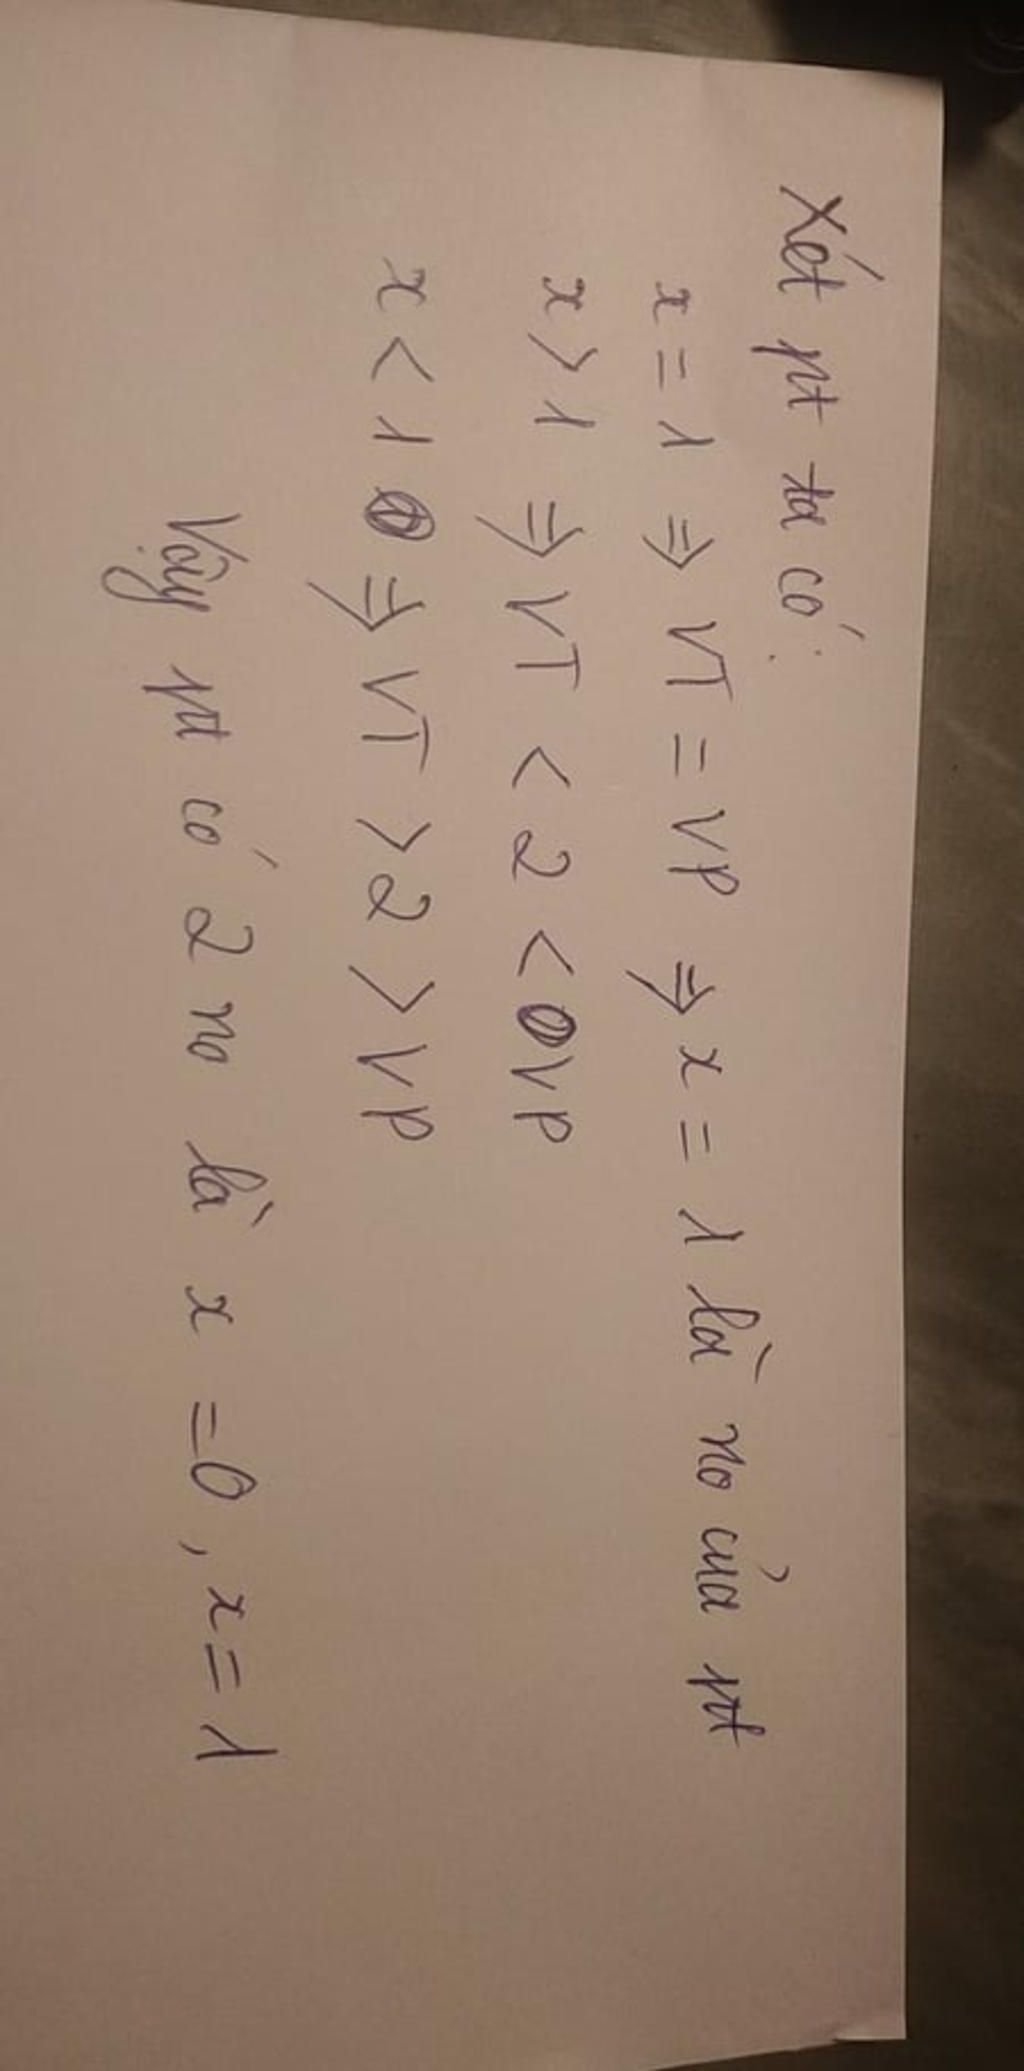 Xét pt ta có:
x = 1 => VT = VP => x = 1 là no của pt
x > 1 => VT < 2 < VP
x < 1 => VT > 2 > VP
Vậy pt có 2 no là x = 0, x = 1